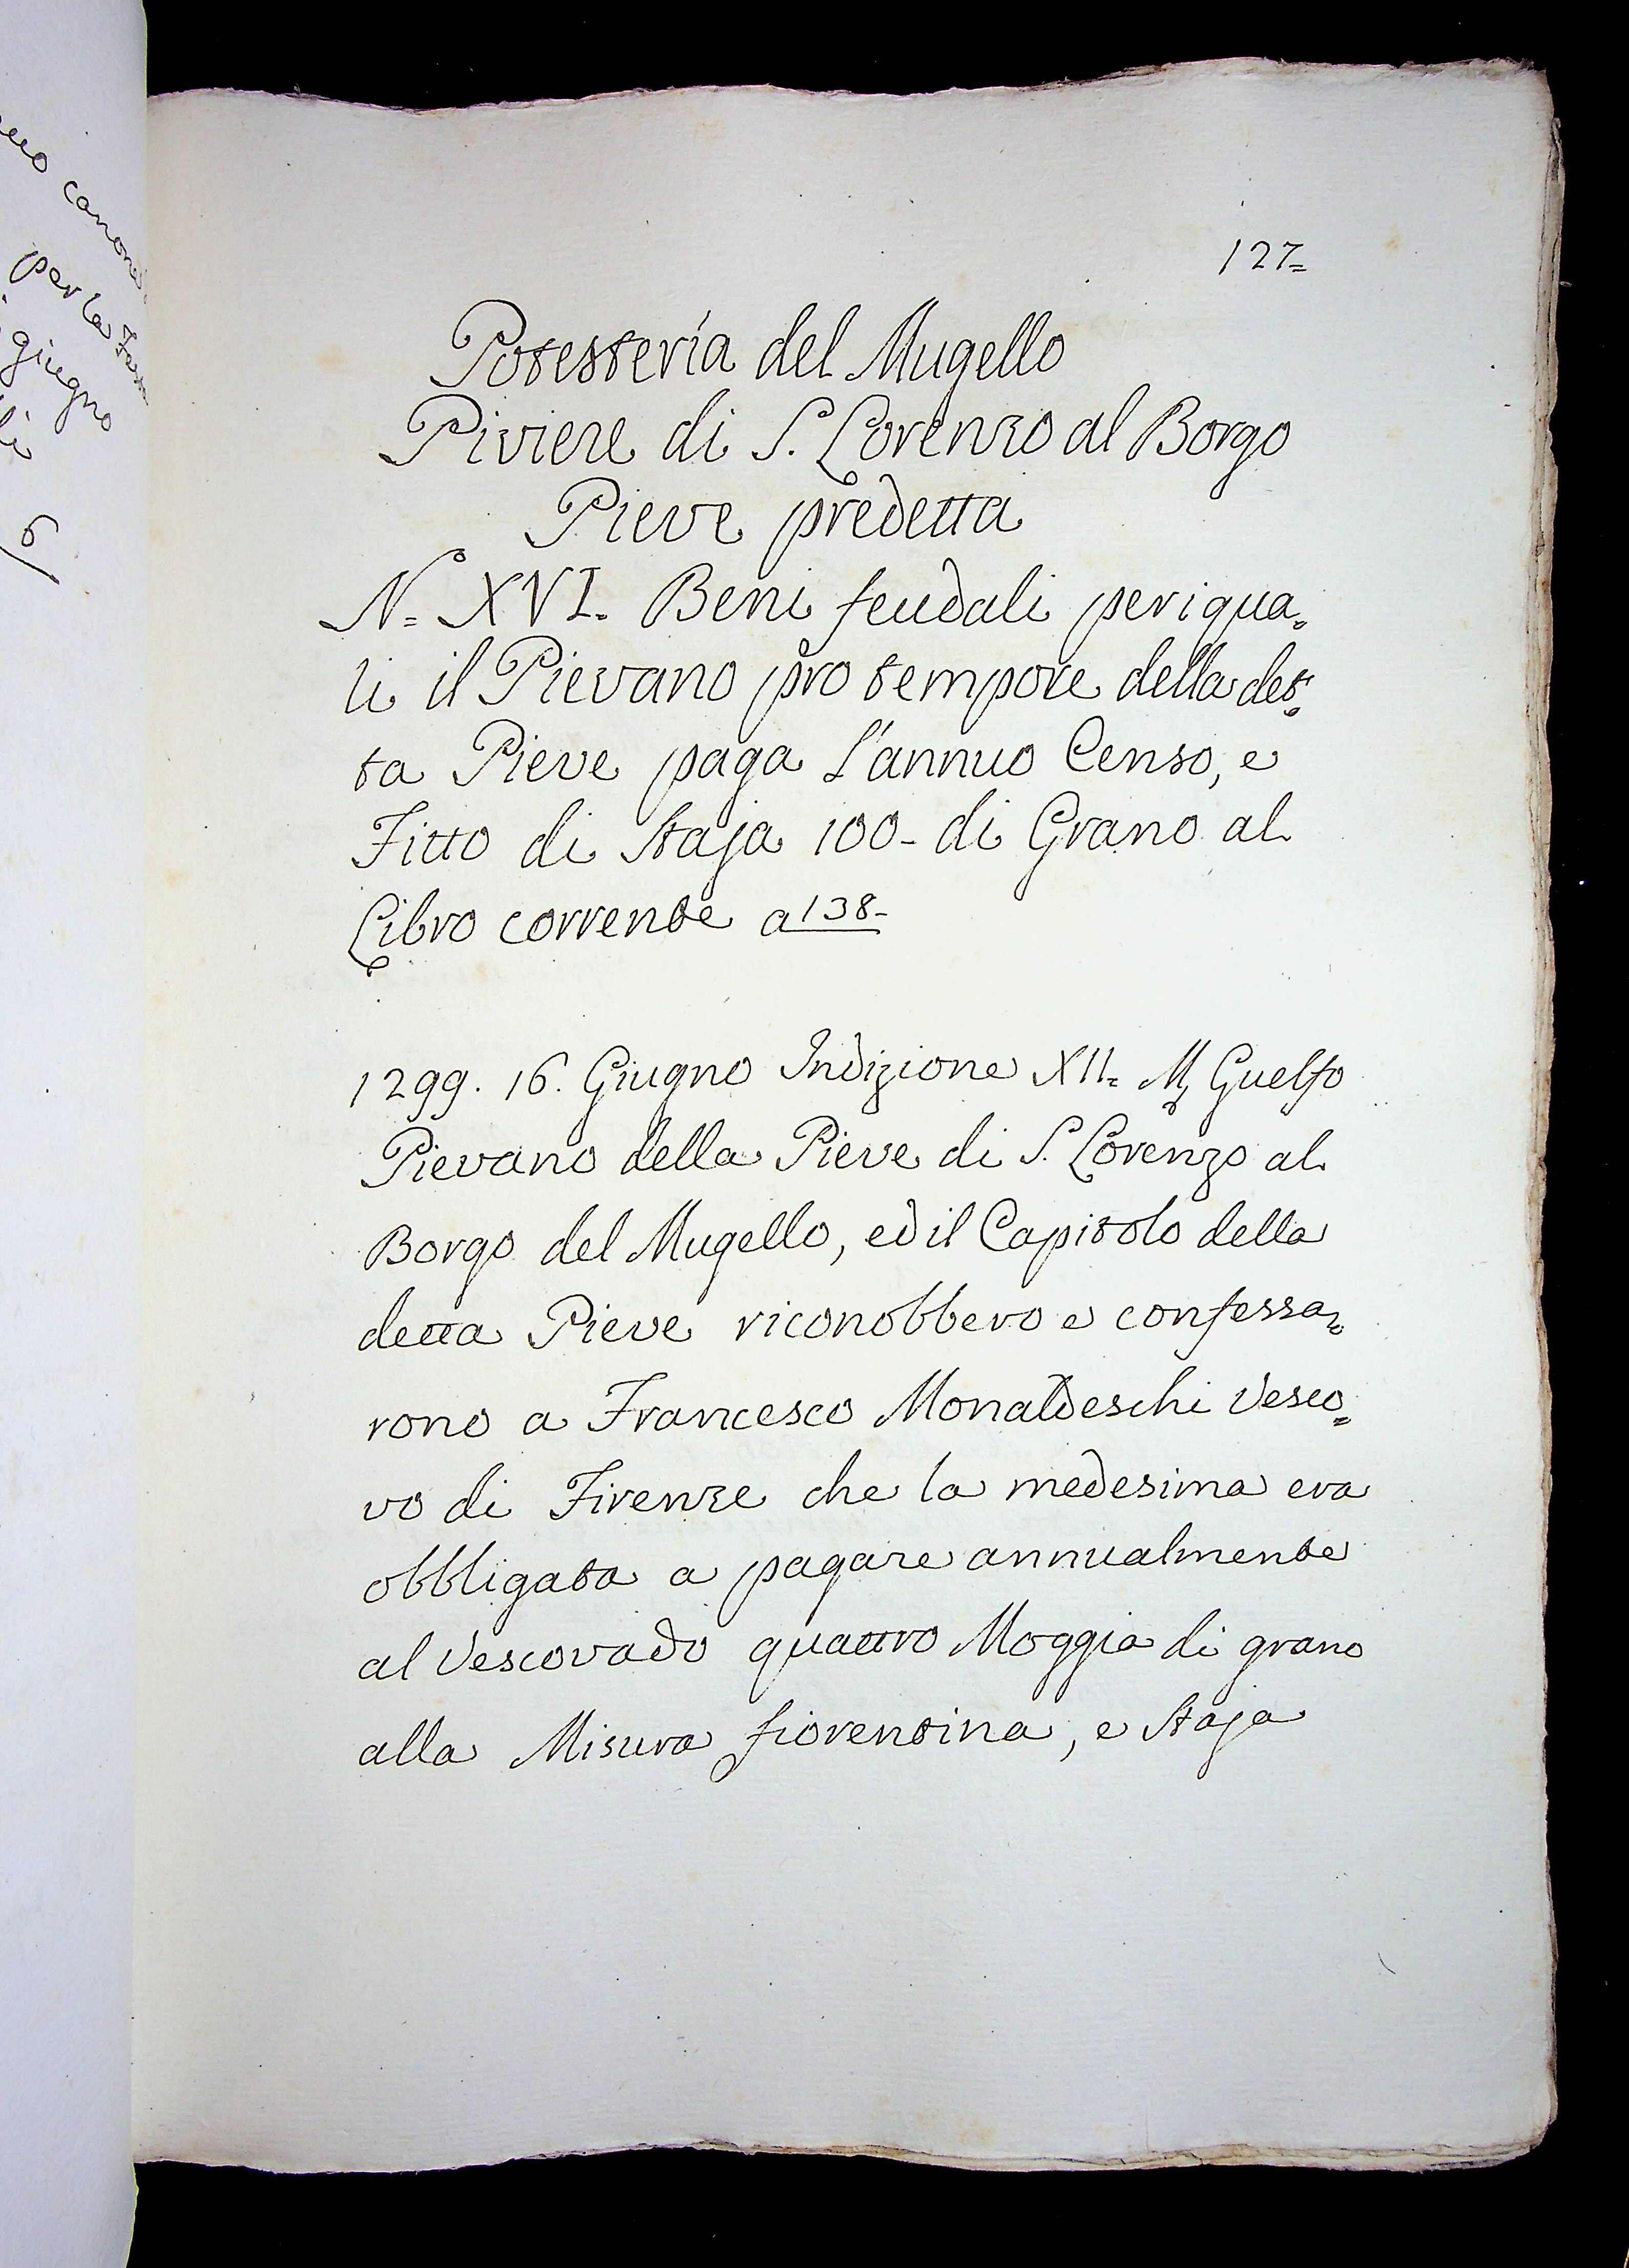 uno canone
per la
giugno
6
127=
Potesteria del Mugello
Piviere di S. Lorenzo al Borgo
Pieve predetta
N.= XVI. Beni feudali per i qua=
li il Pievano pro tempore della det=
ta Pieve paga l'annuo Censo, e
Fitto di Staja 100- di Grano al
Libro corrente a 138-
1299. 16. Giugno Indizione XII= M, Guelfo
Pievano della Pieve di S. Lorenzo al
Borgo del Mugello, ed il Capitolo della
detta Pieve riconobbero e confessa=
rono a Francesco Monaldeschi Vesco=
vo di Firenze che la medesima era
obbligata a pagare annualmente
al Vescovado quattro Moggia di grano
alla Misura fiorentina, e Staja